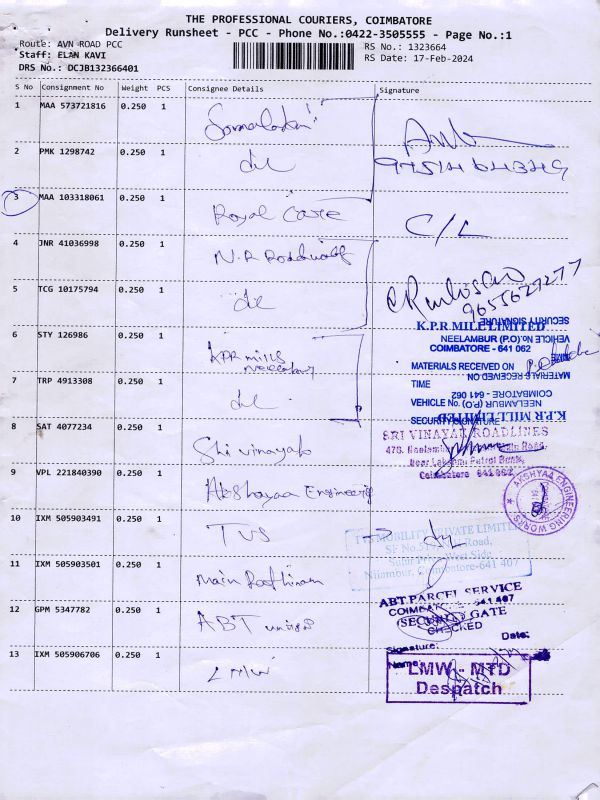 THE PROFESSIONAL COURIERS, COIMBATORE
Delivery Runsheet - PCC - Phone No.:0422-3505555 - Page No.:1
Route: AVN ROAD PCC
Staff: ELAN KAVI
DRS No.: DCJB132366401
RS No.: 1323664
RS Date: 17-Feb-2024
S No Consignment No Weight PCS Consignee Details Signature
1 MAA 573721816 0.250 1
2 PMK 1298742 0.250 1
9751464349
3 MAA 103318061 0.250 1 Royal Care C/L
4 JNR 41036998 0.250 1 N.R
5 TCG 10175794 0.250 1
9655627277
6 STY 126986 0.250 1 KPR mills
SECURITY SIGNATURE
K.P.R MILL LIMITED
VEHICLE No.
NEELAMBUR (P.O)
COIMBATORE - 641 062
TIME
MATERIALS RECEIVED ON
7 TRP 4913308 0.250 1
MATERIALS RECEIVED ON
TIME
COIMBATORE - 641 062
VEHICLE No.
NEELAMBUR (P.O)
K.P.R MILL LIMITED
SECURITY SIGNATURE
8 SAT 4077234 0.250 1 Shri vinayak
SRI VINAYAK ROADLINES
Coimbatore 641 062
9 VPL 221840390 0.250 1 Akshayaa Engineering
AKSHYAA ENGINEERING WORKS
10 IXM 505903491 0.250 1 TVS
TVS MOBILITY PRIVATE LIMITED
11 IXM 505903501 0.250 1 main
Nilambur, Coimbatore-641 407
12 GPM 5347782 0.250 1 ABT
ABT PARCEL SERVICE
COIMBATORE 641 407
(SECURITY GATE
CHECKED
Signature: Date:
13 IXM 505906706 0.250 1 LMW
Name:
LMW - MTD
Despatch